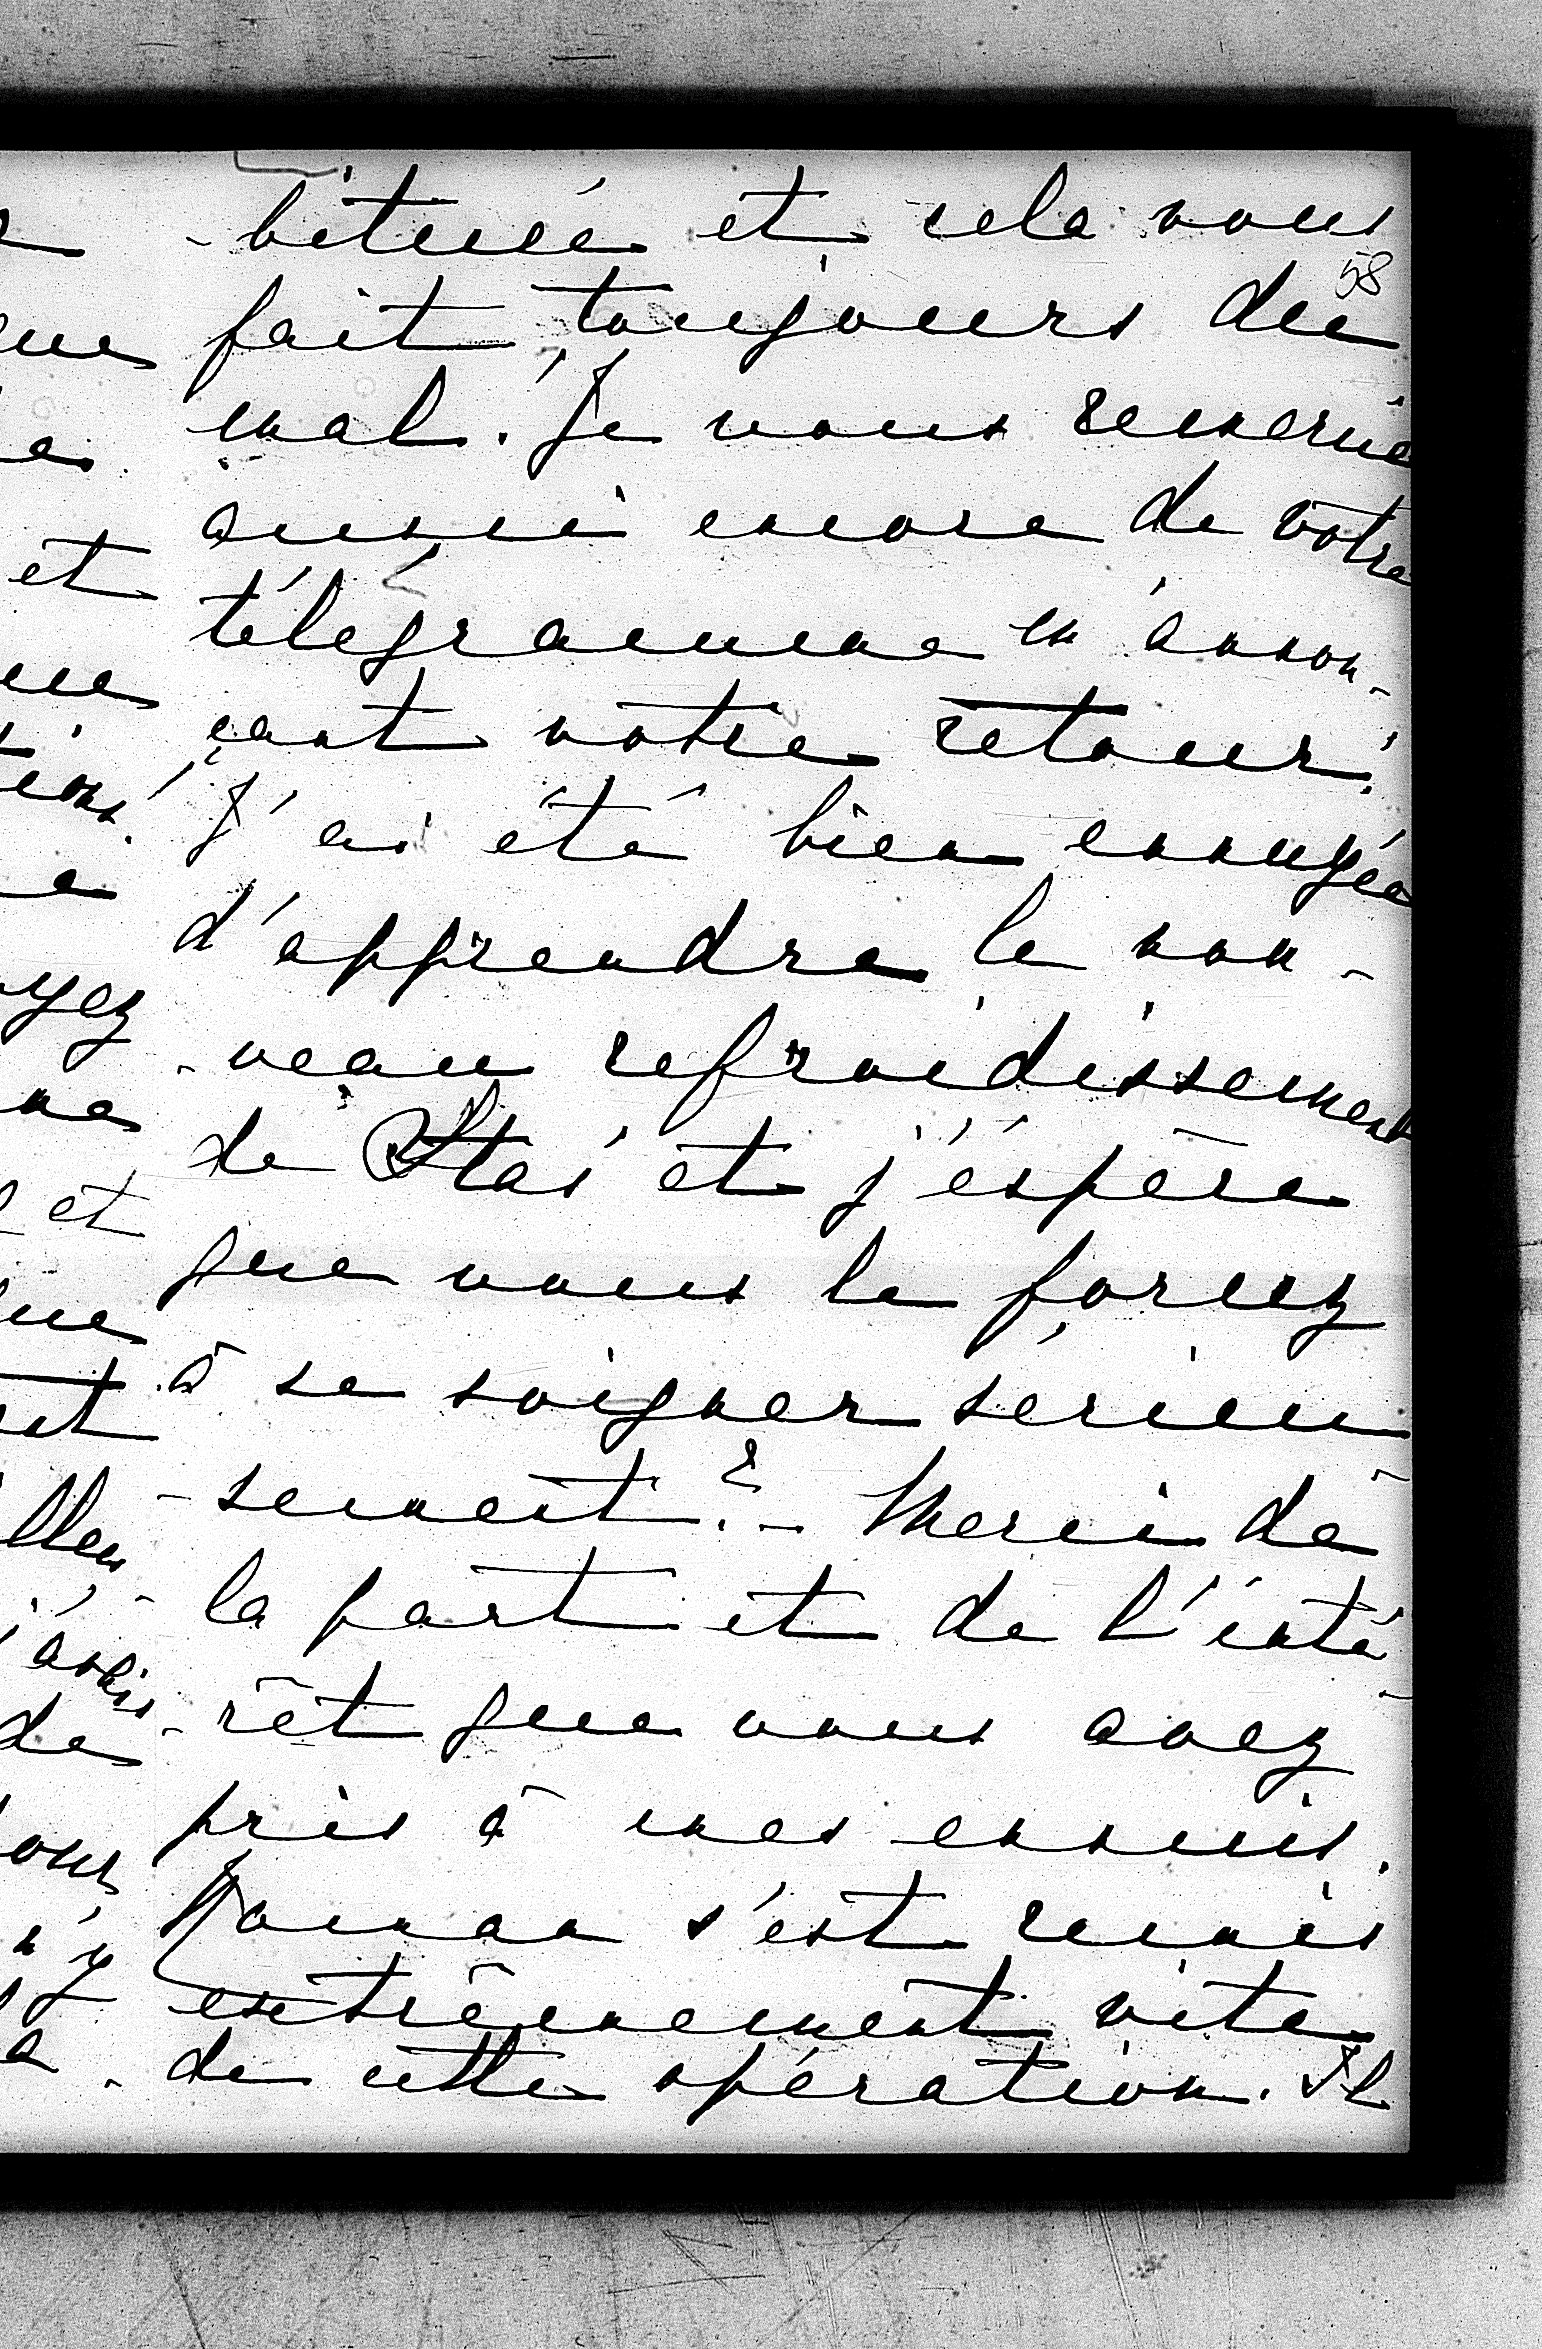 -bituée et cela vous
58
fait toujours du
mal. Je vous remercie
aussi encore de votre
télégramme m'annon-
çant votre retour.
J'ai été bien ennuyée
d'apprendre le nou-
-veau refroidissement
de Stas et j'espère
que vous le forcez
à se soigner sérieu
-sement? - Merci de
la part et de l'inté
-rêt que vous avez
pris à mes ennuis.
Maman s'est remis
extrêmement vite
de cette opération. Il